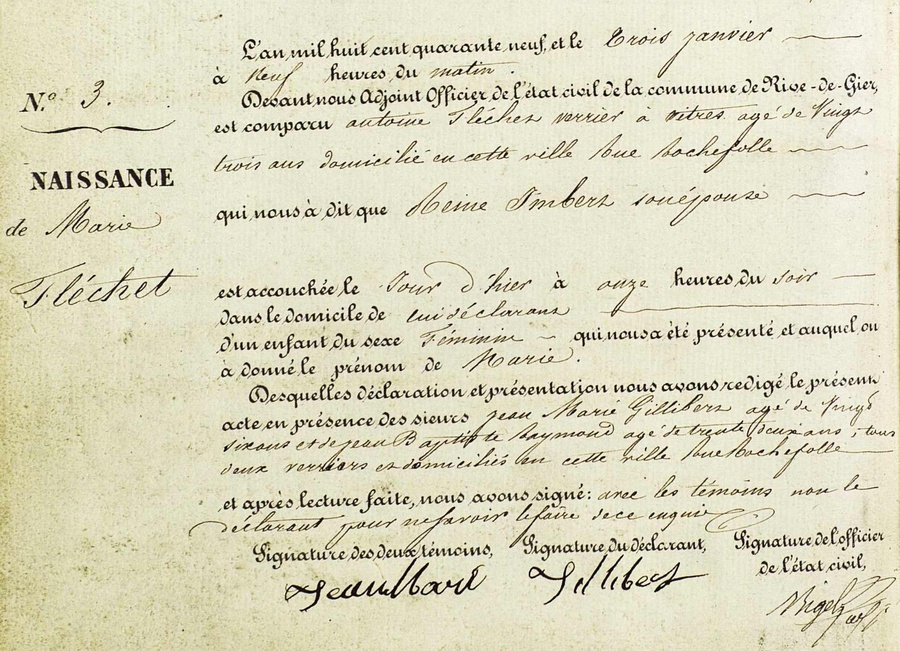 N.o 3.
NAISSANCE
de Marie
Fléchet
L'an mil huit cent quarante neuf, et le trois janvier
à neuf heures du matin.
Devant nous Adjoint Officier de l'état civil de la commune de Rive-de-Gier,
est comparu antoine Fléchet verrier à vitres agé de Vingt
trois ans domicilié en cette ville Rue Rochefolle
qui nous à dit que Reine Imbert son épouse
est accouchée le Jour d'hier à onze heures du soir
dans le domicile de lui déclarant
d'un enfant du sexe Féminin qui nous a été présenté et auquel on
à donné le prénom de Marie.
Desquelles déclaration et présentation nous avons redigé le présent
acte en présence des sieurs jean Marie Gillibert agé de Vingt
six ans et de jean Baptiste Raymond agé de trente deux ans, tous
deux verriers et domiciliés en cette ville Rue Rochefolle
et après lecture faite, nous avons signé: avec les témoins non le
déclarant pour ne savoir le faire de ce enquis
Signature des deux témoins, Signature du déclarant, Signature de l'officier
de l'état civil,
Jean Marie Gillibert